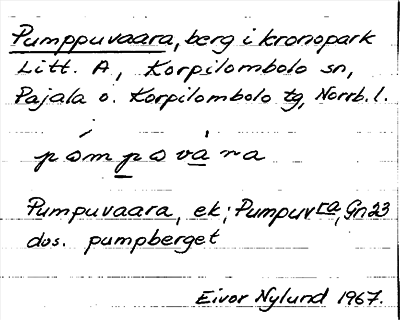 Pumppuvaara, berg i kronopark
Litt. A, Korpilombolo sn,
Pajala o. Korpilombolo tg, Norrb. l.
pómpovàra
Pumpuvaara, ek; Pumpuvra, Gn23
dvs. pumpberget
Eivor Nylund 1967.